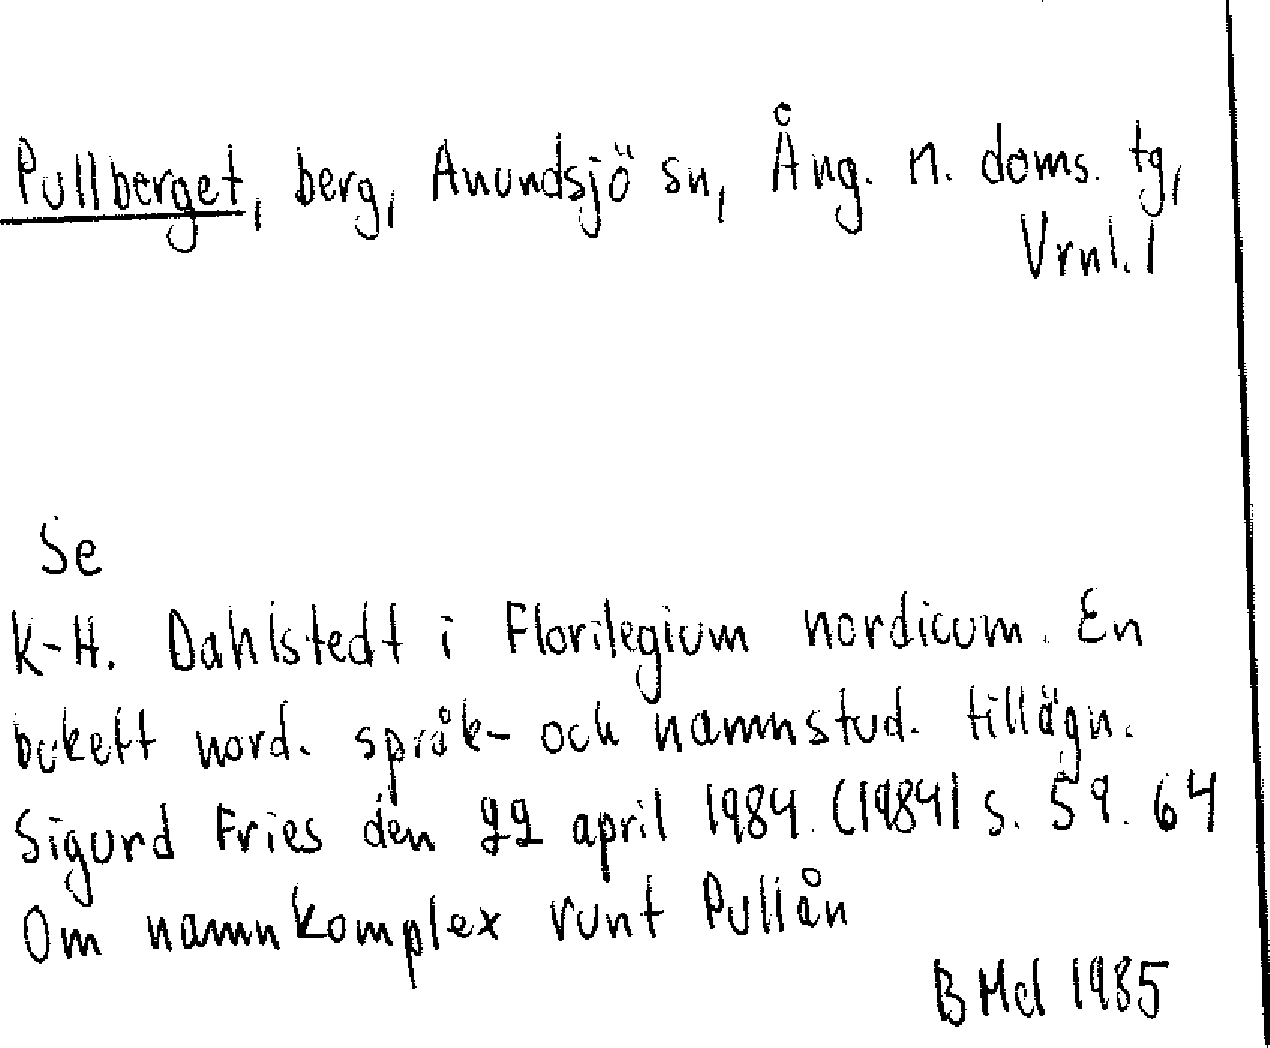 Pullberget, berg, Anundsjö sn, Ång. n. doms. tg,
Vrnl. 1
Se
K-H. Dahlstedt i Florilegium nordicum. En
bukett nord. språk- och namnstud. tillägn.
Sigurd Fries den 22 april 1984. (1984) s. 59. 64
Om namnkomplex runt Pullån
B Mel 1985